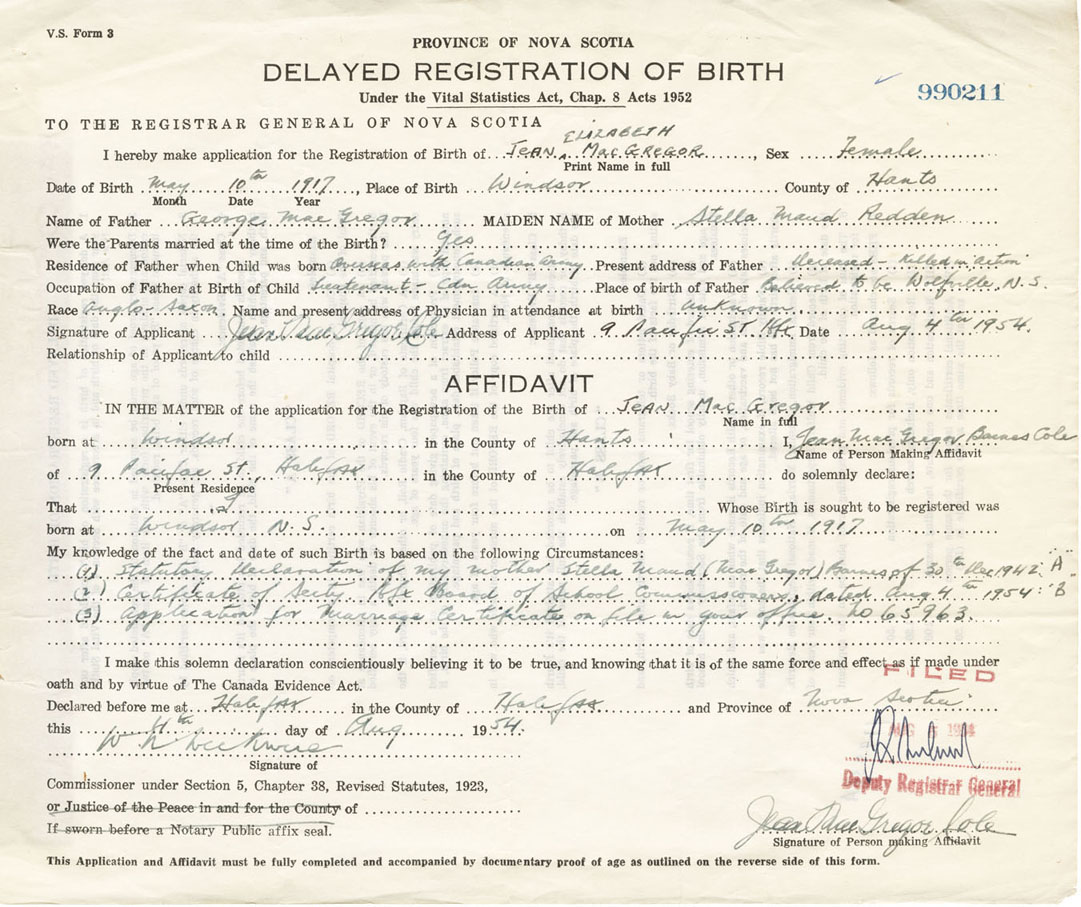 V.S. Form 3
PROVINCE OF NOVA SCOTIA
DELAYED REGISTRATION OF BIRTH
990211
Under the Vital Statistics Act, Chap. 8 Acts 1952
TO THE REGISTRAR GENERAL OF NOVA SCOTIA
ELIZABETH
I hereby make application for the Registration of Birth of JEAN MAC GREGOR, Sex Female
Print Name in full
Date of Birth May 10th 1917, Place of Birth Windsor County of Hants
Month Date Year
Name of Father George Mac Gregor MAIDEN NAME of Mother Stella Maud Redden
Were the Parents married at the time of the Birth? Yes
Residence of Father when Child was born Overseas with Canadian Army Present address of Father Deceased - Killed in action
Occupation of Father at Birth of Child Lieutenant - Cdn Army Place of birth of Father Believed to be Wolfville, N.S.
Race Anglo-Saxon Name and present address of Physician in attendance at birth unknown
Signature of Applicant Jean Mac Gregor Cole Address of Applicant 9 St Hfx Date Aug 4th 1954.
Relationship of Applicant to child
AFFIDAVIT
IN THE MATTER of the application for the Registration of the Birth of JEAN Mac Gregor
Name in full
born at Windsor in the County of Hants I, Jean Mac Gregor Barnes Cole
Name of Person Making Affidavit
of 9 St., Halifax in the County of Halifax do solemnly declare:
Present Residence
That I Whose Birth is sought to be registered was
born at Windsor N.S. on May 10th 1917
My knowledge of the fact and date of such Birth is based on the following Circumstances:
(1) Statutory Declaration of my mother Stella Maud (Mac Gregor) Barnes of 30th Dec 1942 "A"
(2) Certificate of Secty Hfx Board of School Commissioners, dated Aug 4th 1954: "B
(3) Application for Marriage Certificate on file in your office. No 65963.
I make this solemn declaration conscientiously believing it to be true, and knowing that it is of the same force and effect as if made under
oath and by virtue of The Canada Evidence Act.
FILED
Declared before me at Halifax in the County of Halifax and Province of Nova Scotia
this 4th day of Aug 1954.
Signature of
Deputy Registrar General
Commissioner under Section 5, Chapter 38, Revised Statutes, 1923,
or Justice of the Peace in and for the County of
If sworn before a Notary Public affix seal.
Jean Mac Gregor Cole
Signature of Person making Affidavit
This Application and Affidavit must be fully completed and accompanied by documentary proof of age as outlined on the reverse side of this form.